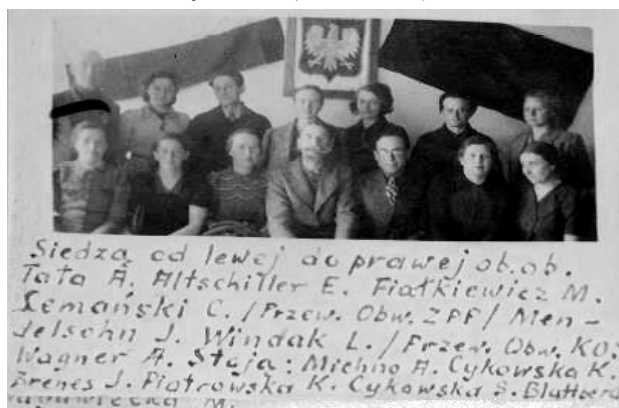 Siedzą od lewej do prawej ob.ob.
Tata A. Altschiller E. Fiałkiewicz M.
Szemański C. /Przew. Obw. ZPP/ Men-
delsohn J. Windak L. /Przew. Obw. KO:
Wagner A. Stoją: Michno A. Cykowska K.
Brenes J. Piotrowska K. Cykowska S. Blattberg
M.